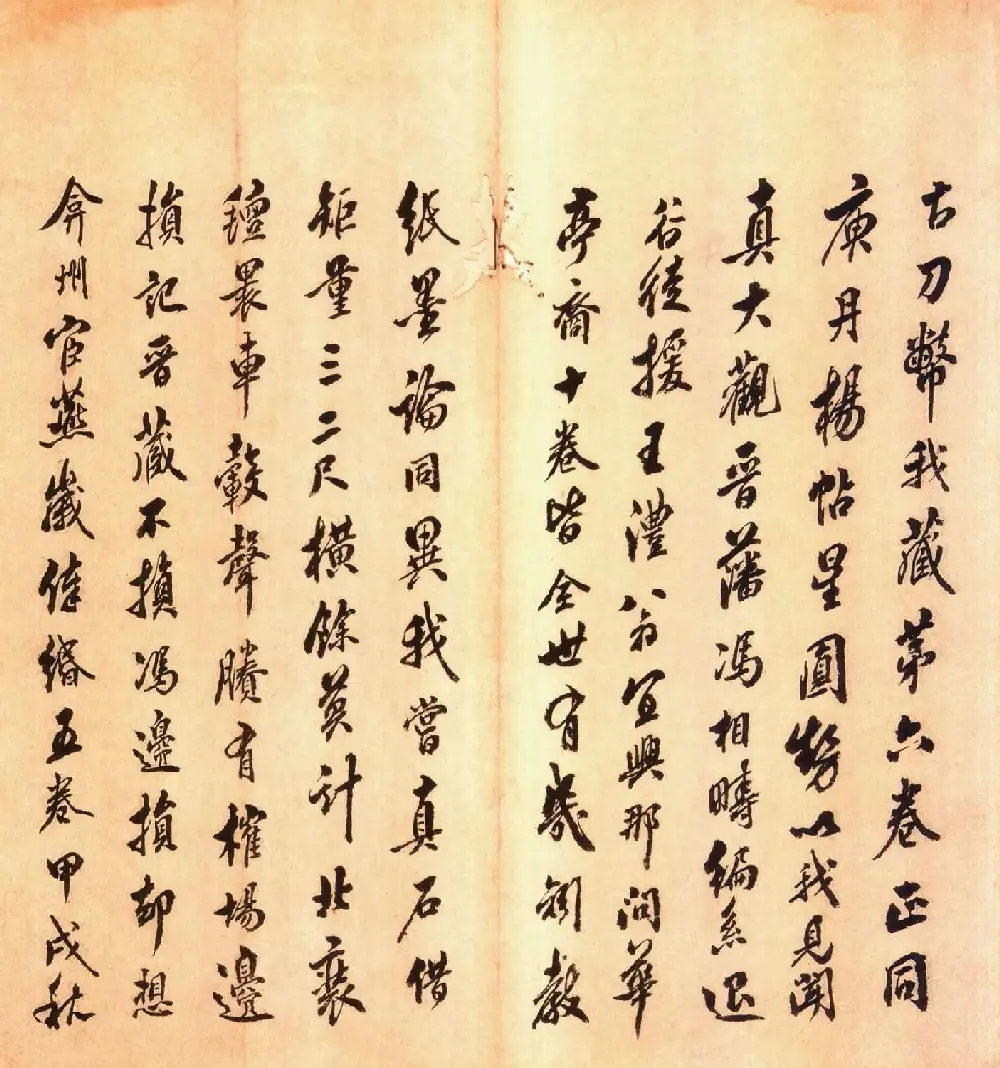 古刀幣我藏第六卷正同
庚月楊帖星圓勢以我見聞
真大觀晉藩馮相疇編系退
谷後援王澧八翁宜興那問華
亭裔十卷皆全世有幾別教
紙墨論同異我嘗真石借
鉅量三二尺橫餘莫計北裹
氊裘車轂聲賸有榷場邊
損記晉藏不損馮邊損却想
弇州官燕歲倖緡五卷甲戌秋